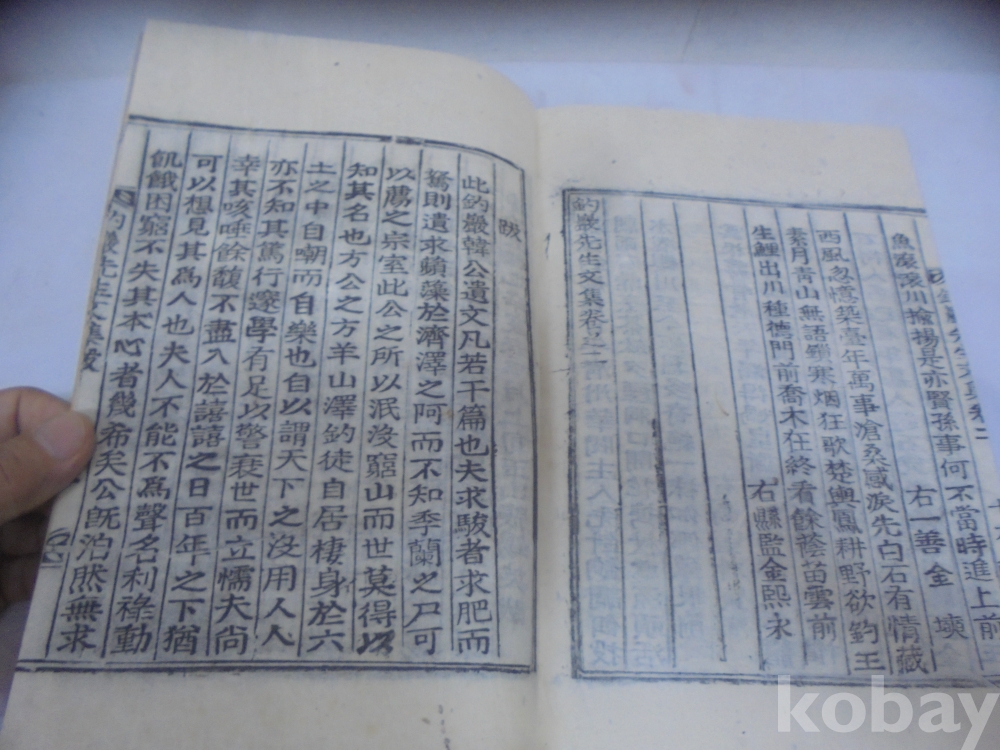 魚發發川搶揚是亦賢孫事何不當時進上前
右一善金
西風忽憶築臺年萬事滄桑感淚先白石有情藏
素月靑山無語鎖寒烟狂歌楚輿鳳耕野欲釣王
生鯉出川種德門前喬木在終看餘蔭苗雲前
右縣監金熙永
釣巖先生文集卷之二
跋
此釣巖韓公遺文凡若干篇也夫求駿者求肥而
駑則遺求蘋藻於濟澤之阿而不知季蘭之尸可
以薦之宗室此公之所以泯沒窮山而世莫得以
知其名也方公之方羊山澤釣徒自居棲身於六
土之中自嘲而自樂也自以謂天下之沒用人人
亦不知其篤行邃學有足以警衰世而立懦夫尙
幸其咳唾餘馥不盡入於譆譆之日百年之下猶
可以想見其爲人也夫人不能不爲聲名利祿動
飢餓困窮不失其本心者幾希矣公旣泊然無求
釣巖先生文集跋
kobay